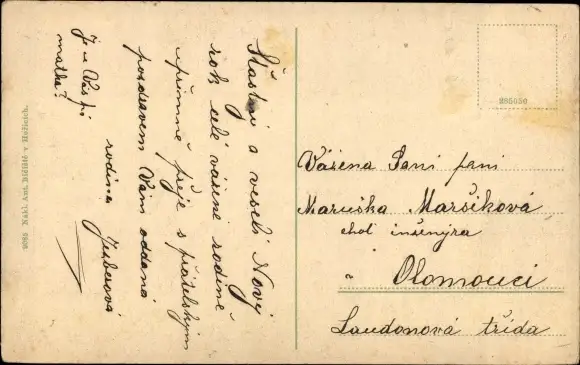 Šťastný a veselý Nový
rok celé vážené rodině
upřímně přeje s přátelským
pozdravem Vám oddaná
rodina
Je u Vás pí
matka?
9085 Nakl. Ant. Běliště v Hořicích.
985050
Vážena Paní paní
Maruška Maršíková
choť inšenýra
v Olomouci
Laudonová třída